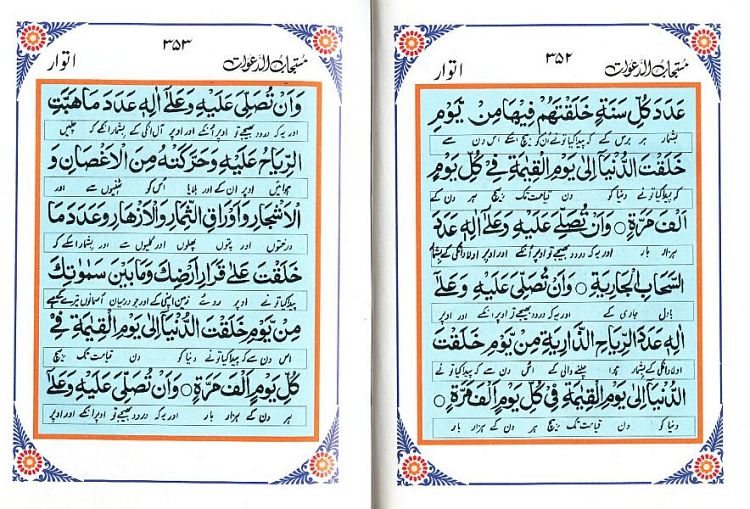 ٣٥٢
مستجاب الدعوات
اتوار
عَدَدَ كُلِّ سَنَةٍ خَلَقْتَهُمْ فِيهَا مِنْ يَّوْمِ
بشمار ہر برس کے کہ پیدا کیا تو نے اُن کو بیچ اسکے اس دن سے
خَلَقْتَ الدُّنْيَا اِلٰى يَوْمِ الْقِيٰمَةِ فِيْ كُلِّ يَوْمٍ
کہ پیدا کیا تو نے دنیا کو دن قیامت تک بیچ ہر دن کے
اَلْفَ مَرَّةٍ ○ وَاَنْ تُصَلِّيَ عَلَيْهِ وَعَلٰٓى اٰلِهٖ عَدَدَ
ہزار بار اور یہ کہ درود بھیجے تو اوپر اُنکے اور اوپر اولاد انکی کے بشمار
السَّحَابِ الْجَارِيَةِ ○ وَاَنْ تُصَلِّيَ عَلَيْهِ وَعَلٰٓى
بادل جاری کے اور یہ کہ درود بھیجے تو اوپر اُنکے اور اوپر
اٰلِهٖ عَدَدَ الرِّيَاحِ الذَّارِيَةِ مِنْ يَّوْمِ خَلَقْتَ
اولاد انکی کے بشمار ہوا چلنے والی کے اُس دن سے کہ پیدا کیا تو نے
الدُّنْيَا اِلٰى يَوْمِ الْقِيٰمَةِ فِيْ كُلِّ يَوْمٍ اَلْفَ مَرَّةٍ ○
دنیا کو دن قیامت تک بیچ ہر دن کے ہزار بار
٣٥٣
مستجاب الدعوات
اتوار
وَاَنْ تُصَلِّيَ عَلَيْهِ وَعَلٰٓى اٰلِهٖ عَدَدَ مَا هَبَّتِ
اور یہ کہ درود بھیجے تو اوپر اُنکے اور اوپر آل انکی کے بشمار اُنکے کہ چلیں
الرِّيَاحُ عَلَيْهِ وَحَرَّكَتْهُ مِنَ الْاَغْصَانِ وَ
ہوائیں اوپر ان کے اور ہلایا اُس کو ٹہنیوں سے اور
الْاَشْجَارِ وَاَوْرَاقِ الثِّمَارِ وَالْاَزْهَارِ وَعَدَدَ مَا
درختوں اور پتوں پھلوں اور کلیوں سے اور بشمار اُسکے کہ
خَلَقْتَ عَلٰى قَرَارِ اَرْضِكَ وَمَا بَيْنَ سَمٰوٰتِكَ
پیدا کیا تو نے اوپر روئے زمین اپنی کے اور جو درمیان آسمانوں تیرے کے ہے
مِنْ يَّوْمِ خَلَقْتَ الدُّنْيَا اِلٰى يَوْمِ الْقِيٰمَةِ فِيْ
اس دن سے کہ پیدا کیا تو نے دنیا کو دن قیامت تک بیچ
كُلِّ يَوْمٍ اَلْفَ مَرَّةٍ ○ وَاَنْ تُصَلِّيَ عَلَيْهِ وَعَلٰٓى
ہر دن کے ہزار بار اور یہ کہ درود بھیجے تو اوپر اُنکے اور اوپر